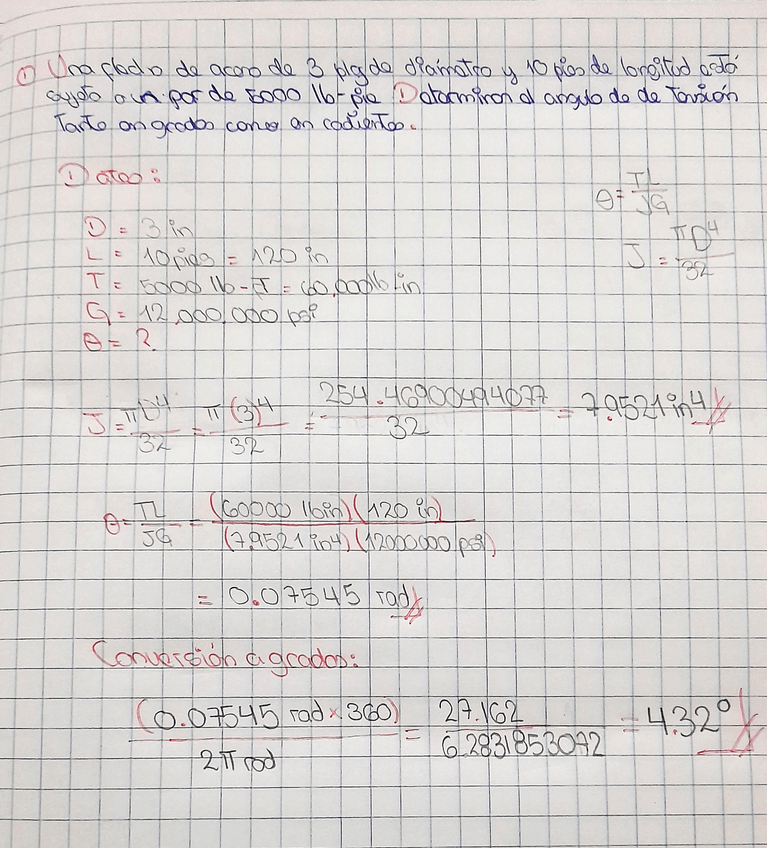 ① Una flecha de acero de 3 plg de diámetro y 10 pies de longitud está
sujeta a un par de 5000 lb-pie Determinar el angulo de de Torsión
Tanto en grados como en radientes.
Datos:
θ = TL/JG
D = 3 in
J = πD⁴/32
L = 10 pies = 120 in
T = 5000 lb-FT = 60,000 lb-in
G = 12,000,000 psi
θ = ?
J = πD⁴/32 = π(3)⁴/32 = 254.46900494077/32 = 7.9521 in⁴
θ = TL/JG = (60000 lbin)(120 in)/(7.9521 in4)(12000000 psi)
= 0.07545 rad
Conversión a grados:
(0.07545 rad x 360)/2π rad = 27.162/6.2831853072 = 4.32°